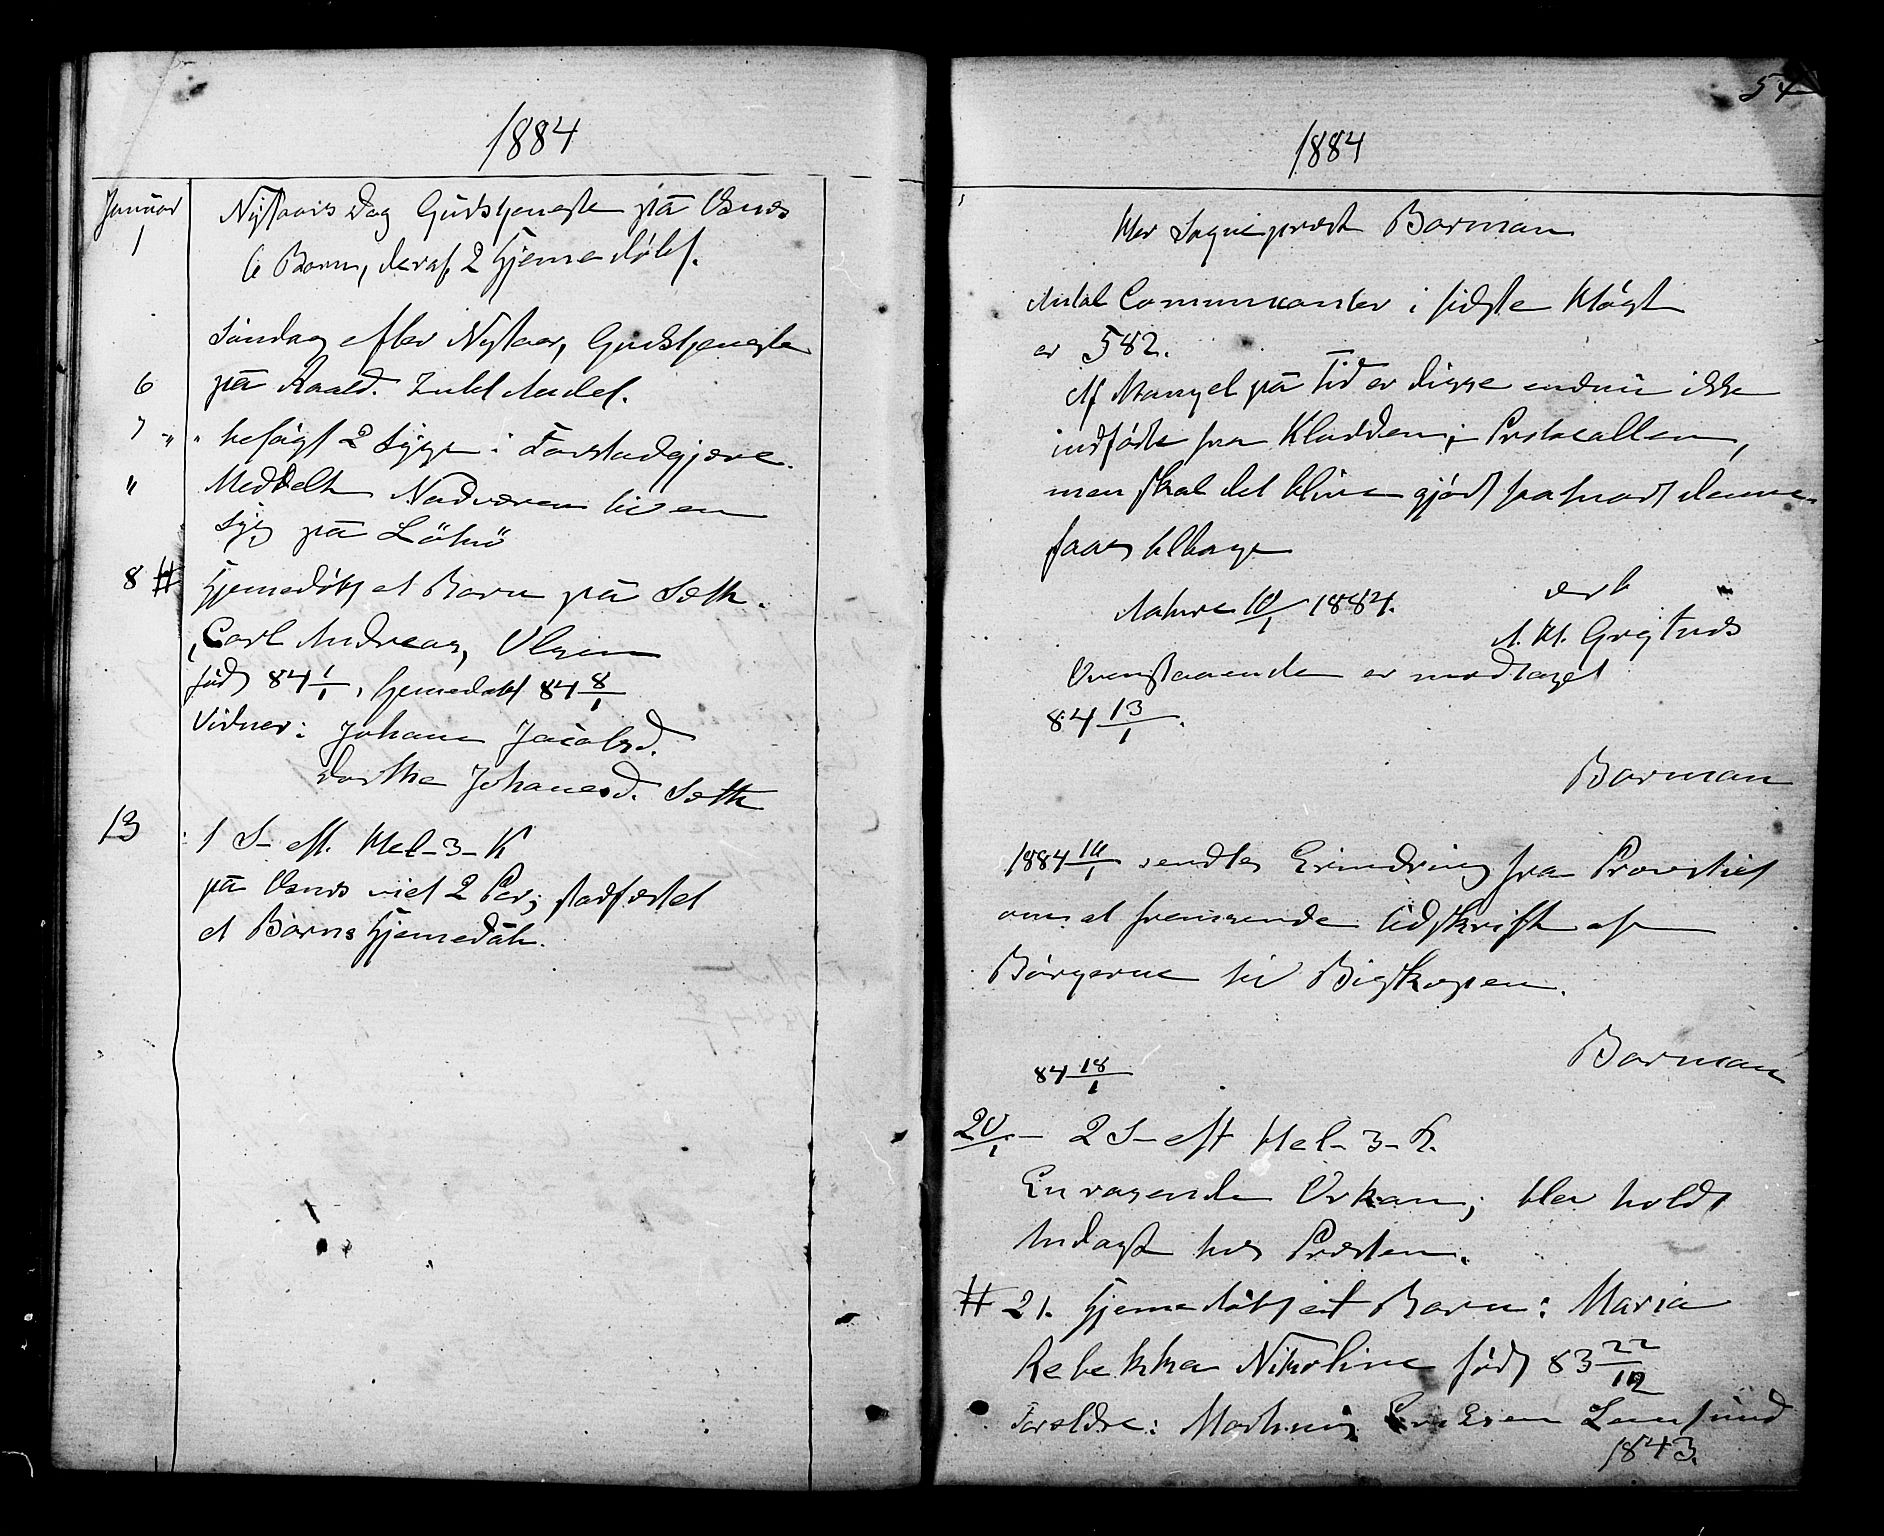 1884
Januar
1 Nytaarsdag Gudstjeneste på Osnes
6 Børn, deraf 2 hjemedøbt.
Søndag efter Nytaar, Gudstjeneste
6 på Raald.
7 " " besøgt 2 Syge i
" Meddelt Nadveren til en
Syg på
8 # Hjemedøbt et Barn på Sæth.
Carl Andreas, Olsen
født 84 1/1, hjemedøbt 84 8/1
Vidner: Johan Jacobsd.
Dorthe Johanesd. Sæth
13 1 S- eft. Hel-3-K
på Osnes viet 2 Par; stadfæstet
et Barns Hjemedåb.
54
1884
Hr Sogneprest Borman
Antal Communicanter i sidste Høst
er 582.
Af Mangel på Tid er disse endnu ikke
indførte fra Kladden i Protocallen,
men skal det blive gjort saasnart denne
faaes tilbage
10/1 1884. ærb
Ovenstaaende er modtaget
84 13/1.
Borman
1884 14/1 sendtes Erindring fra Provstiet
om at fremsende Udskrift af
Bøgerne til Biskopen.
84 18/1 Borman
20/1 - 2 S- eft Hel-3-K.
En rasende Orkan; blev holdt
Andagt hos Præsten.
# 21. Hjemedøbt et Barn: Maria
Rebekka Nikoline født 83 22/12
Forældre:
1843.